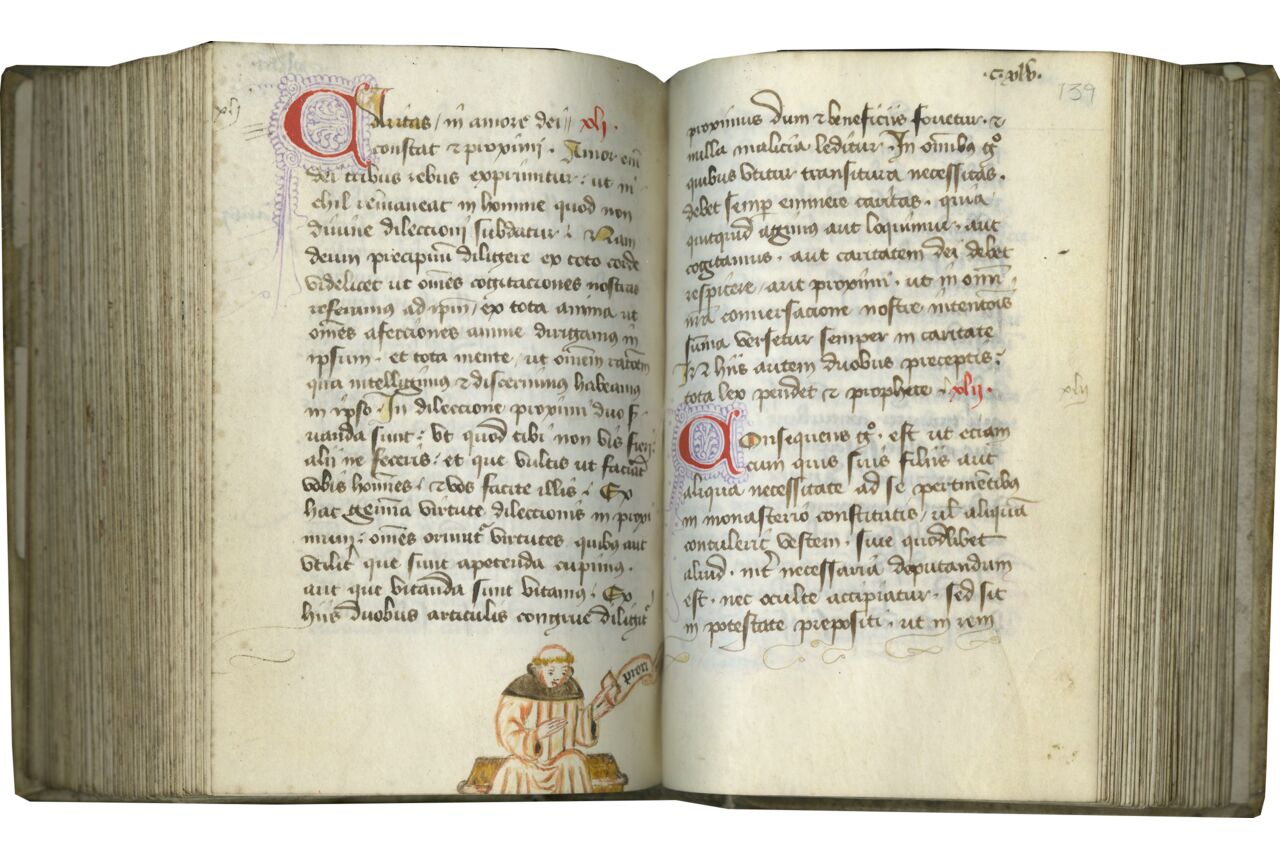 xlj
Caritas / in amore dei // xli.
constat ⁊ proximi . Amor enī
dei tribus rebus exprimitur : ut ni
chil remaneat in homine quod non
diuine dilectioni subdatur : Nam
deum precipimur diligere ex toto corde
videlicet ut om̄es cogitaciones nostras
referamus ad ip̄m / ex tota anima ut
om̄es afecciones anime dirigamus in
ipsum . et tota mente / ut om̄em racōem
qua intelligimus ⁊ discernimus habeamus
in ipso . In dileccione proximi duo s̄
uanda sunt : Vt quod tibi non vis fieri
alij ne feceris : et que vultis ut faciāt
vobis homīes . ⁊ vos facite illis . Ex
hac gemina virtute dilectionis in proxi
mum : om̄es oriunt᷑ virtutes quibus aut
vtilit᷑ que sunt apetenda cupimus .
aut que vitanda sunt vitamus . Ex
hiis duobus articulis congrue diligit᷑
priori
.c.xlv.
139
proximus dum ⁊ beneficiis fouetur . ⁊
nulla malicia leditur . In omībus gͦ
quibus vtitur transitura necessitas .
debet semp̱ eminere caritas . quia
quicquid agimus aut loquimur . aut
cogitamus . aut caritatem dei debet
respicere / aut proximi . ut in omni
nr̄a conuersacione nostre intenc̄ois
sūma versetur semper in caritate
In hiis autem duobus preceptis :
tota lex pendet ⁊ prophete . xlij .
xlij
Consequens gͦ . est ut eciam
cum quis suis filiis aut
aliqua necessitate ad se pertinētibus
in monasterio constitutis / ul̄ aliquā
contulerit vestem . siue quodlibet
aliud . int᷑ necessaria deputandum
est . nec oculte accipiatur . sed sit
in potestate prepositi . ut in rem